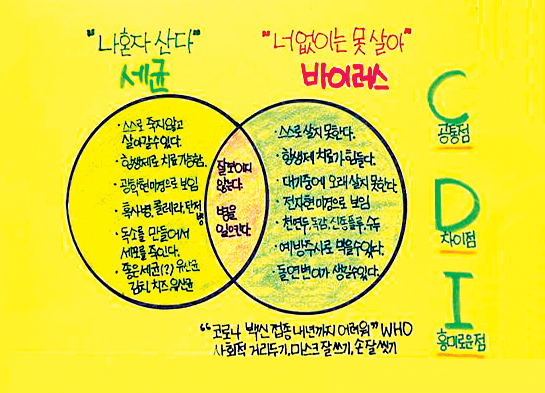 "나혼자 산다"
세균
"너없이는 못 살아"
바이러스
· 스스로 죽지않고
살아갈수있다.
· 항생제로 치료가능함.
· 광학현미경으로 보임
· 흑사병, 콜레라, 탄저
병
· 독소를 만들어서
세포를 죽인다.
· 좋은세균(?) 유산균
김치, 치즈 유산균
잘보이지
않는다.
병을
일으킨다.
· 스스로 살지 못한다.
· 항생제 치료가 힘들다.
· 대기중에 오래 살지 못한다.
· 전자현미경으로 보임
· 천연두, 독감, 신종플루, 수두
· 예방주사로 막을수있다.
· 돌연변이가 생길수있다.
C
공통점
D
차이점
I
흥미로운점
"코로나 백신 접종 내년까지 어려워" WHO
사회적 거리두기, 마스크 잘쓰기, 손 잘 씻기